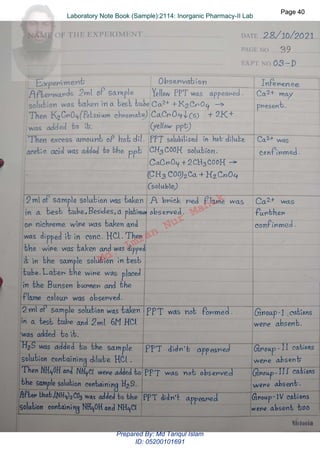 Laboratory Note Book (Sample):2114: Inorganic Pharmacy-II Lab
Page 40
NAME OF THE EXPERIMENT
DATE 28/10/2021
PAGE NO 39
EXPT NO 03-D
Experiment
Observation
Inference
Afterwards 2ml of sample
solution was taken in a test tube
Then K2CrO4 (Potassium chromate)
was added to it.
Yellow PPT was appeared.
Ca2+ + K2CrO4 →
CaCrO4↓(s) + 2K+
(yellow ppt)
Ca2+ may
present.
Then excess amounts of hot dil.
acetic acid was added to the ppt
PPT solubilised in hot dilute
CH3COOH solution.
CaCrO4 + 2CH3COOH →
(CH3COO)2Ca + H2CrO4
(soluble)
Ca2+ was
confirmed.
2ml of sample solution was taken
in a test tube. Besides, a platinum
or nichrome wire was taken and
was dipped it in conc. HCl. Then
the wire was taken and was dipped
it in the sample solution in test
tube. Later the wire was placed
in the Bunsen burner and the
flame colour was observed.
A brick red flame was
observed.
Ca2+ was
further
confirmed.
2ml of sample solution was taken
in a test tube and 2ml 6M HCl
was added to it.
PPT was not formed.
Group-I cations
were absent.
H2S was added to the sample
solution containing dilute HCl.
PPT didn't appeared
Group-II cations
were absent
Then NH4OH and NH4Cl were added to
the sample solution containing H2S.
PPT was not observed
Group-III cations
were absent.
After that, (NH4)2CO3 was added to the
solution containing NH4OH and NH4Cl
PPT didn't appeared
Group-IV cations
were absent too
Victoria
Prepared By: Md Tariqul Islam
ID: 05200101691